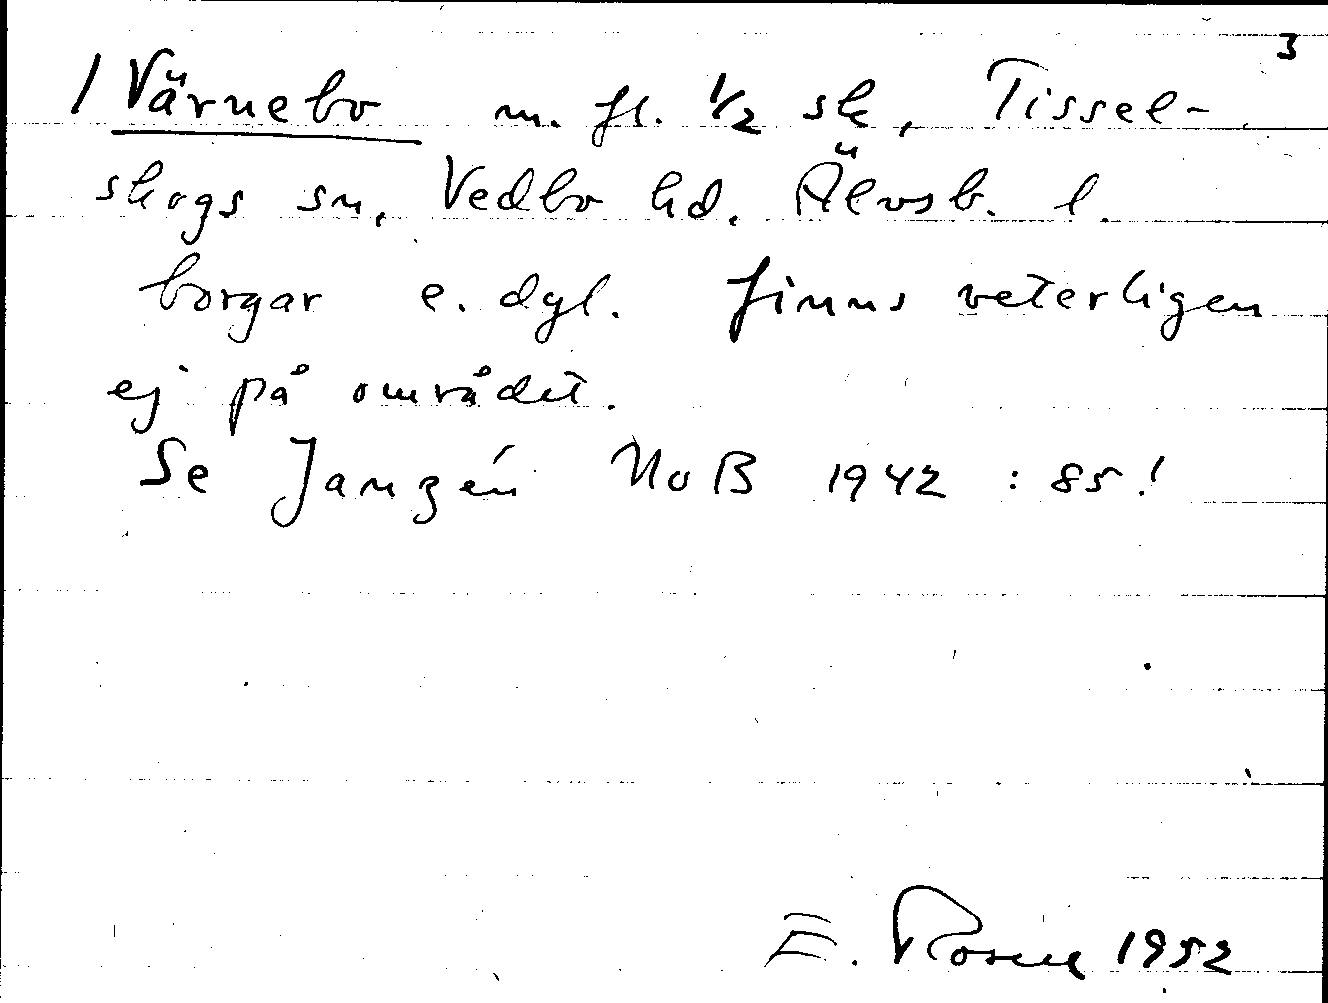 3
/ Värnebo m. fl. 1/2 sk, Tissel-
skogs sn, Vedbo hd. Älvsb. l.
borgar e. dyl. finns veterligen
ej på området.
Se Janzén NoB 1942 : 85!
E. Rosell 1952